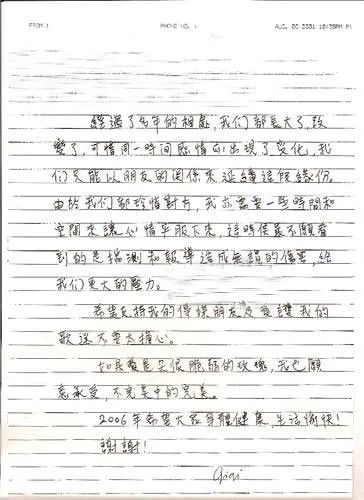 FROM :
PHONE NO. :
AUG. 06 2001 10:35PM P1
經過了多年的相處,我们都長大了,改
變了,可惜同一時間感情亦出現了變化,我
们只能以朋友的関係來延續這段緣份。
由於我们都珍惜對方,我亦需要一些時間和
空間來讓心情平服下來,這時侯最不願看
到的是揣測和報導造成無謂的傷害,給
我们更大的壓力。
希望支持我的傳媒朋友及愛護我的
歌迷不要太擔心。
如果愛是朵很脆弱的玫瑰,我也願
意承受,不完美中的完美。
2006年希望大家身體健康,生活愉快!
謝謝!
Gigi